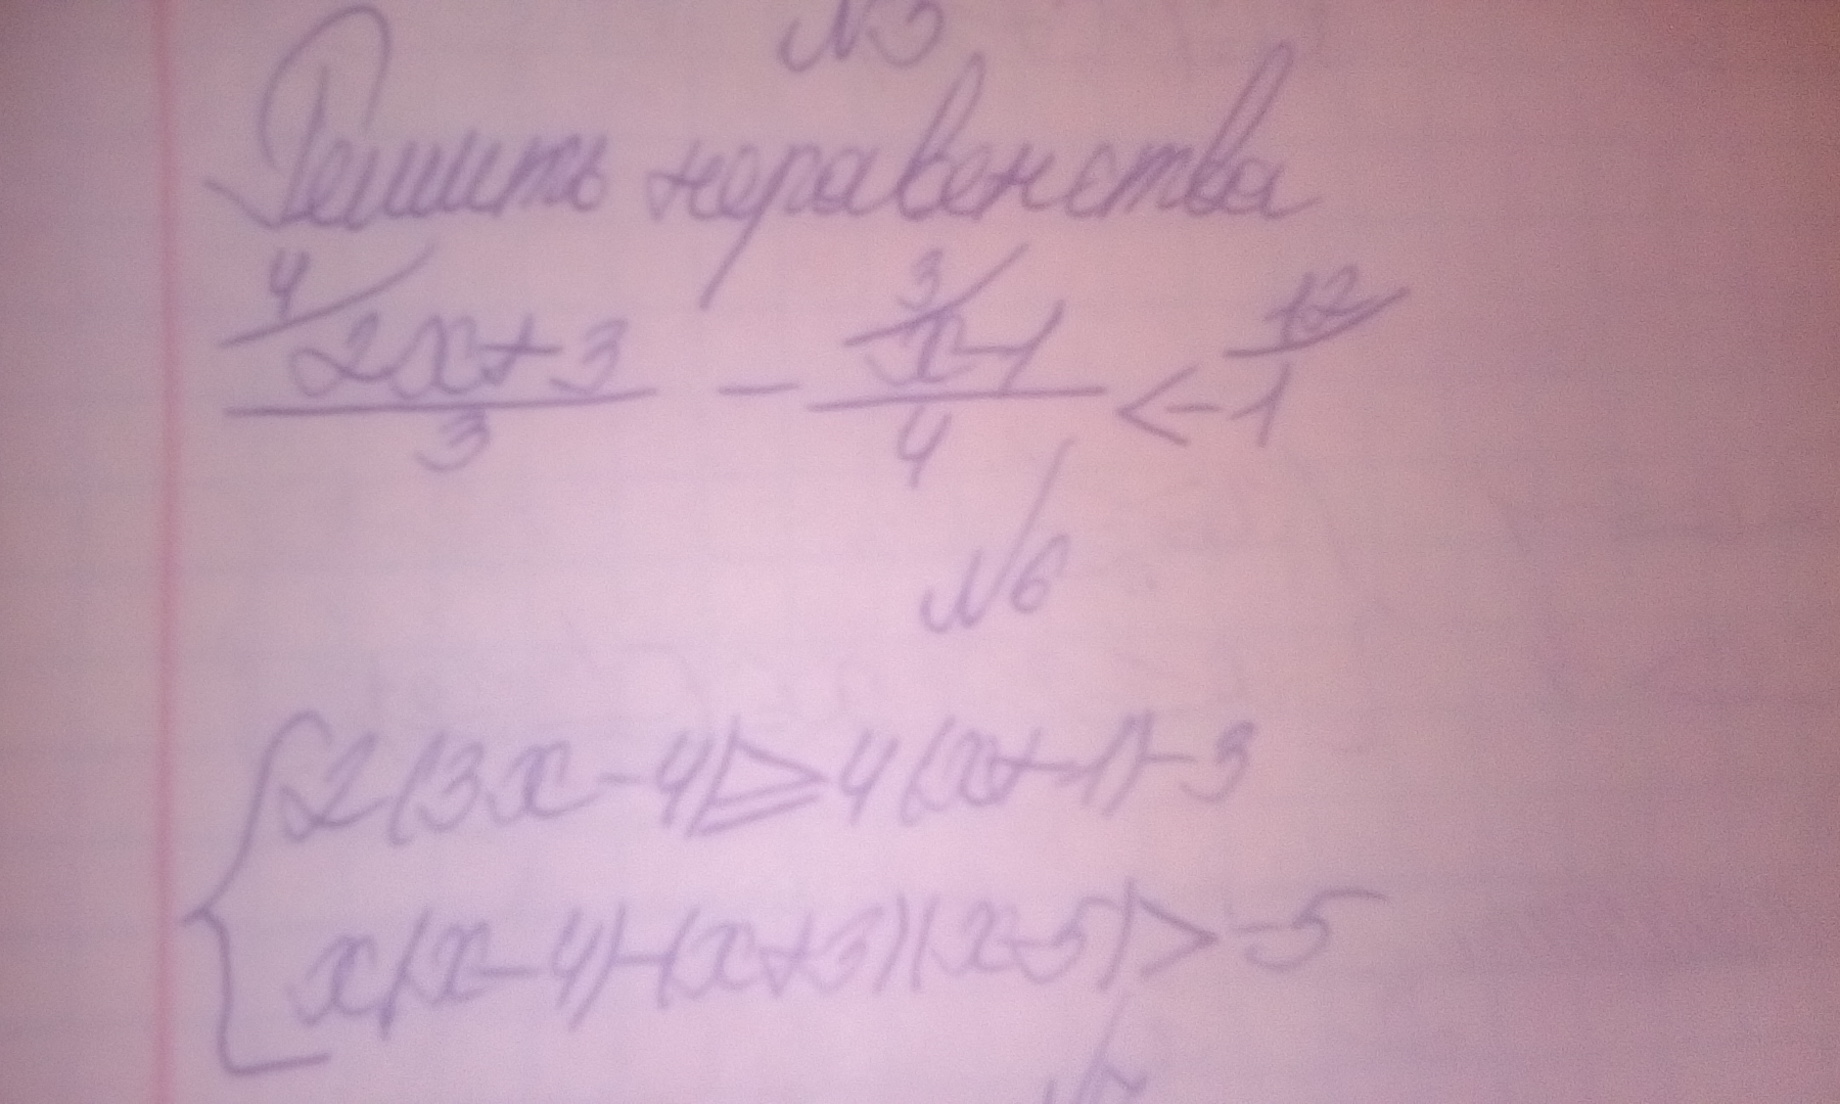 Решить неравенства
4/ 2x+3 / 3 - 3/ x-1 / 4 < -1 12/ / 1
N6
{ 2(3x-4) ≥ 4(x+1)-3
x(x-4)-(x+3)(x-5) > -5